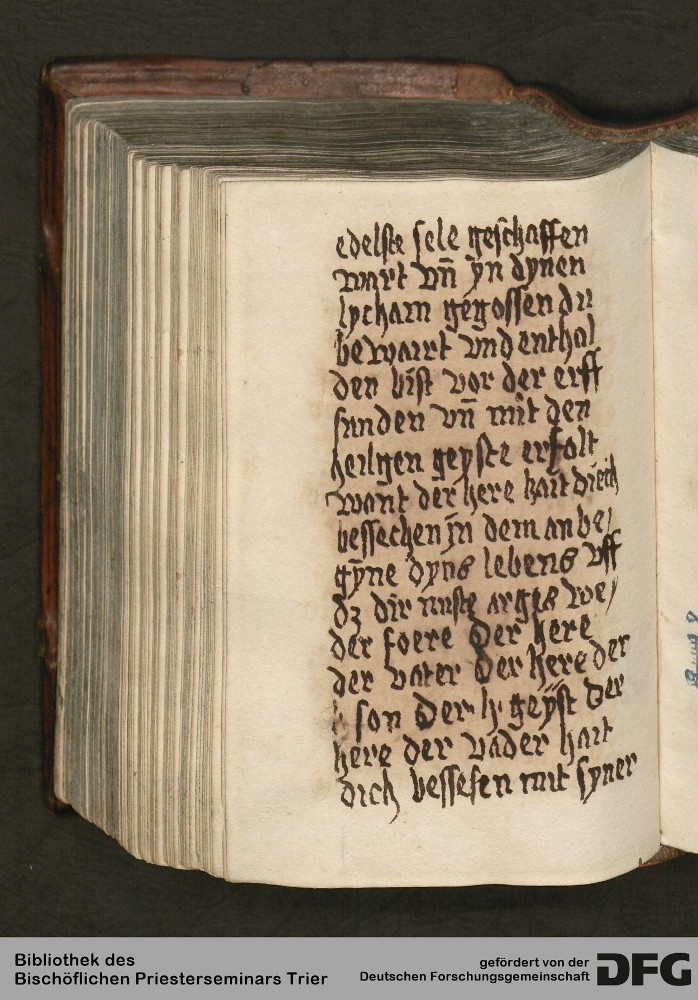 edelste sele geschaffen
wart vn̄ ÿn dynen
lycham gegossen du
bewairt vnd enthal
den bist vor der erff
sunden vn̄ mit den
heilgen geyste erfolt
want der here hait diech
bessechen jn dem an be/
gȳne dyns lebens vff
dz dir nuste arges we/
der foere Der here
der vater Der here der
son Der h. geÿst Der
here der vader hait
dich bessesen mit syner
Bibliothek des
Bischöflichen Priesterseminars Trier
gefördert von der
Deutschen Forschungsgemeinschaft
DFG